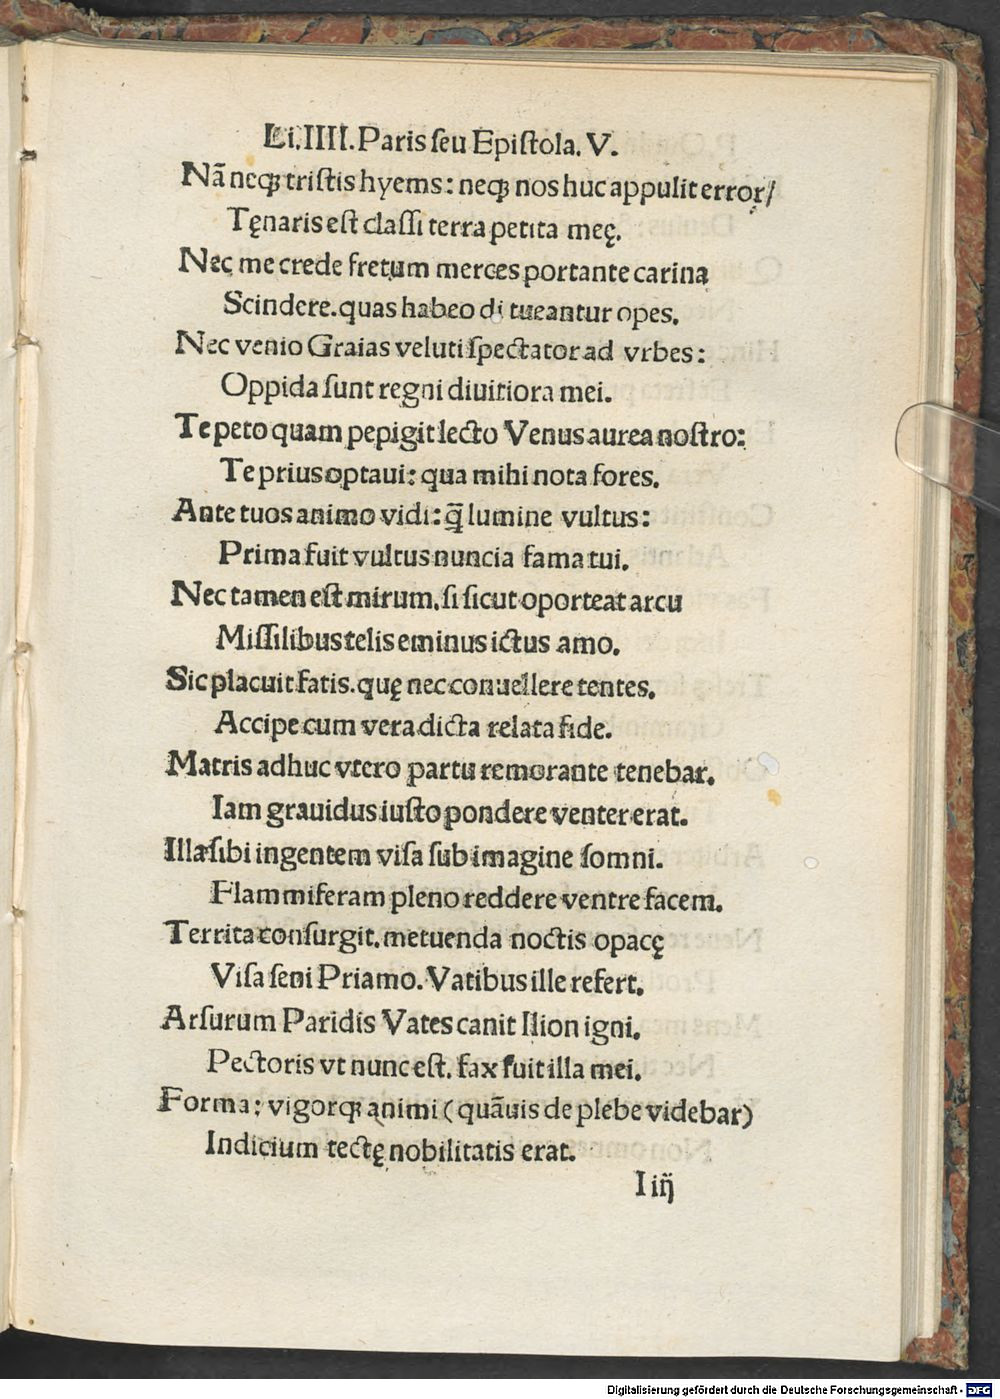 Li.IIII.Paris ſeu Epiſtola. V.
Nã neqꝫ triſtis hyems: neqꝫ nos huc appulit error/
Tęnaris eſt claſſi terra petita meę.
Nec me crede fretum merces portante carina
Scindere. quas habeo di tueantur opes.
Nec venio Graias veluti ſpectator ad vrbes:
Oppida ſunt regni diuitiora mei.
Te peto quam pepigit lecto Venus aurea noſtro:
Te prius optaui: qua mihi nota fores.
Ante tuos animo vidi: q̃ lumine vultus:
Prima fuit vultus nuncia fama tui.
Nec tamen eſt mirum. ſi ſicut oporteat arcu
Miſſilibus telis eminus ictus amo.
Sic placuit fatis. quę nec conuellere tentes.
Accipe cum vera dicta relata fide.
Matris adhuc vtero partu remorante tenebar.
Iam grauidus iuſto pondere venter erat.
Illa ſibi ingentem viſa ſub imagine ſomni.
Flammiferam pleno reddere ventre facem.
Territa conſurgit. metuenda noctis opacę
Viſa ſeni Priamo. Vatibus ille refert.
Arſurum Paridis Vates canit Ilion igni.
Pectoris vt nunc eſt. fax fuit illa mei.
Forma: vigorqꝫ animi (quãuis de plebe videbar)
Indicium tectę nobilitatis erat.
I iij
Digitalisierung gefördert durch die Deutsche Forschungsgemeinschaft - DFG